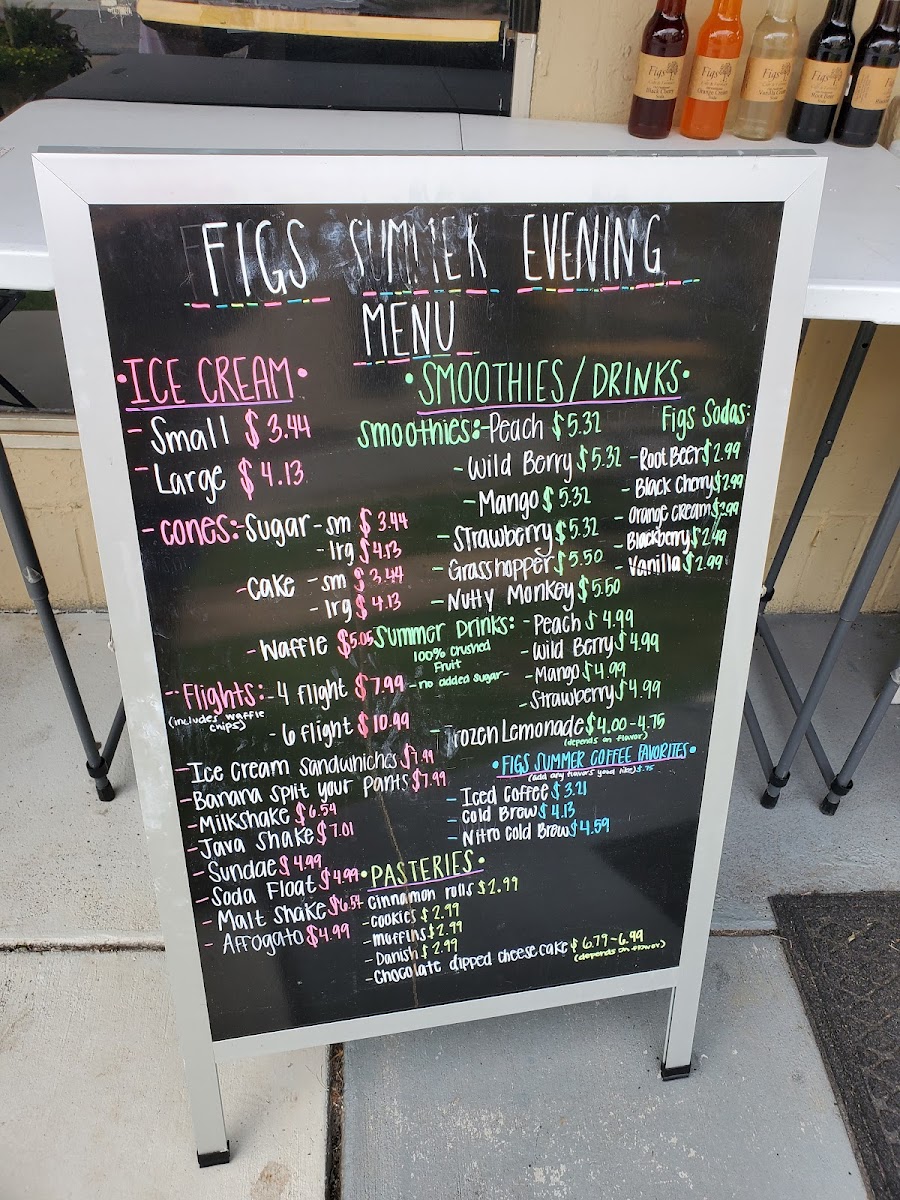 FIGS SUMMER EVENING
MENU
•ICE CREAM•
- Small $3.44
- Large $4.13
- cones:-Sugar-sm $3.44
- lrg $4.13
-cake -sm $3.44
- lrg $4.13
- Waffle $5.05
-- Flights:-4 flight $7.99
(includes waffle
chips)
- 6 flight $10.99
-Ice cream Sandwhiches $7.99
-Banana split your pants $7.99
-Milkshake $6.54
-Java Shake $7.01
-Sundae $4.99
-Soda Float $4.99
- Malt Shake $6.54
- Affogato $4.99
•SMOOTHIES/DRINKS•
Smoothies:-Peach $5.32
-Wild Berry $5.32
-Mango $5.32
-Strawberry $5.32
-Grasshopper $5.50
- Nutty Monkey $5.50
Figs Sodas:
-Root Beer $2.99
- Black Cherry $2.99
- Orange cream $2.99
-Blackberry $2.99
- Vanilla $2.99
Summer Drinks: -Peach $4.99
100% crushed
Fruit
-no added sugar-
- Wild Berry $4.99
-Mango $4.99
-Strawberry $4.99
-Frozen Lemonade $4.00-4.75
(depends on flavor)
•FIGS SUMMER COFFEE FAVORITES•
(add any flavors you'd like) $.75
- Iced Coffee $3.21
- Cold Brew $4.13
- Nitro Cold Brew $4.59
•PASTERIES•
- cinnamon rolls $2.99
-cookies $2.99
-muffins $2.99
-Danish $2.99
-Chocolate dipped cheese cake $6.79-6.99
(depends on flavor)
Figs
Black Cherry
Figs
Orange Cream
Figs
Vanilla Cream
Figs
Root Beer
Figs